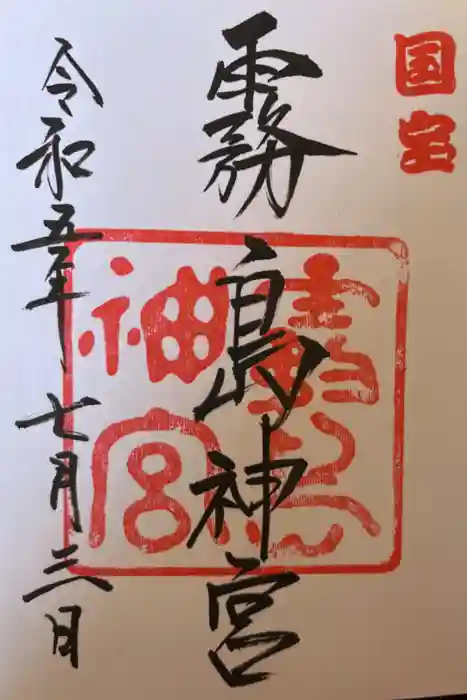 国宝
霧島神宮
霧島神宮
令和五年七月三日